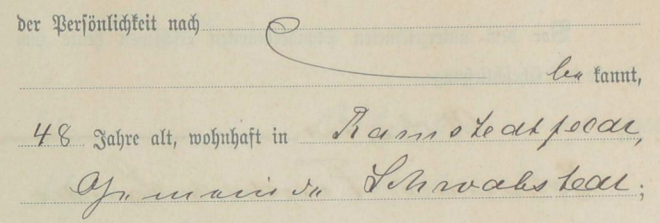 der Persönlichkeit nach
be kannt,
48 Jahre alt, wohnhaft in Ramstedtfeldt,
Gemeinde Schwabstedt;